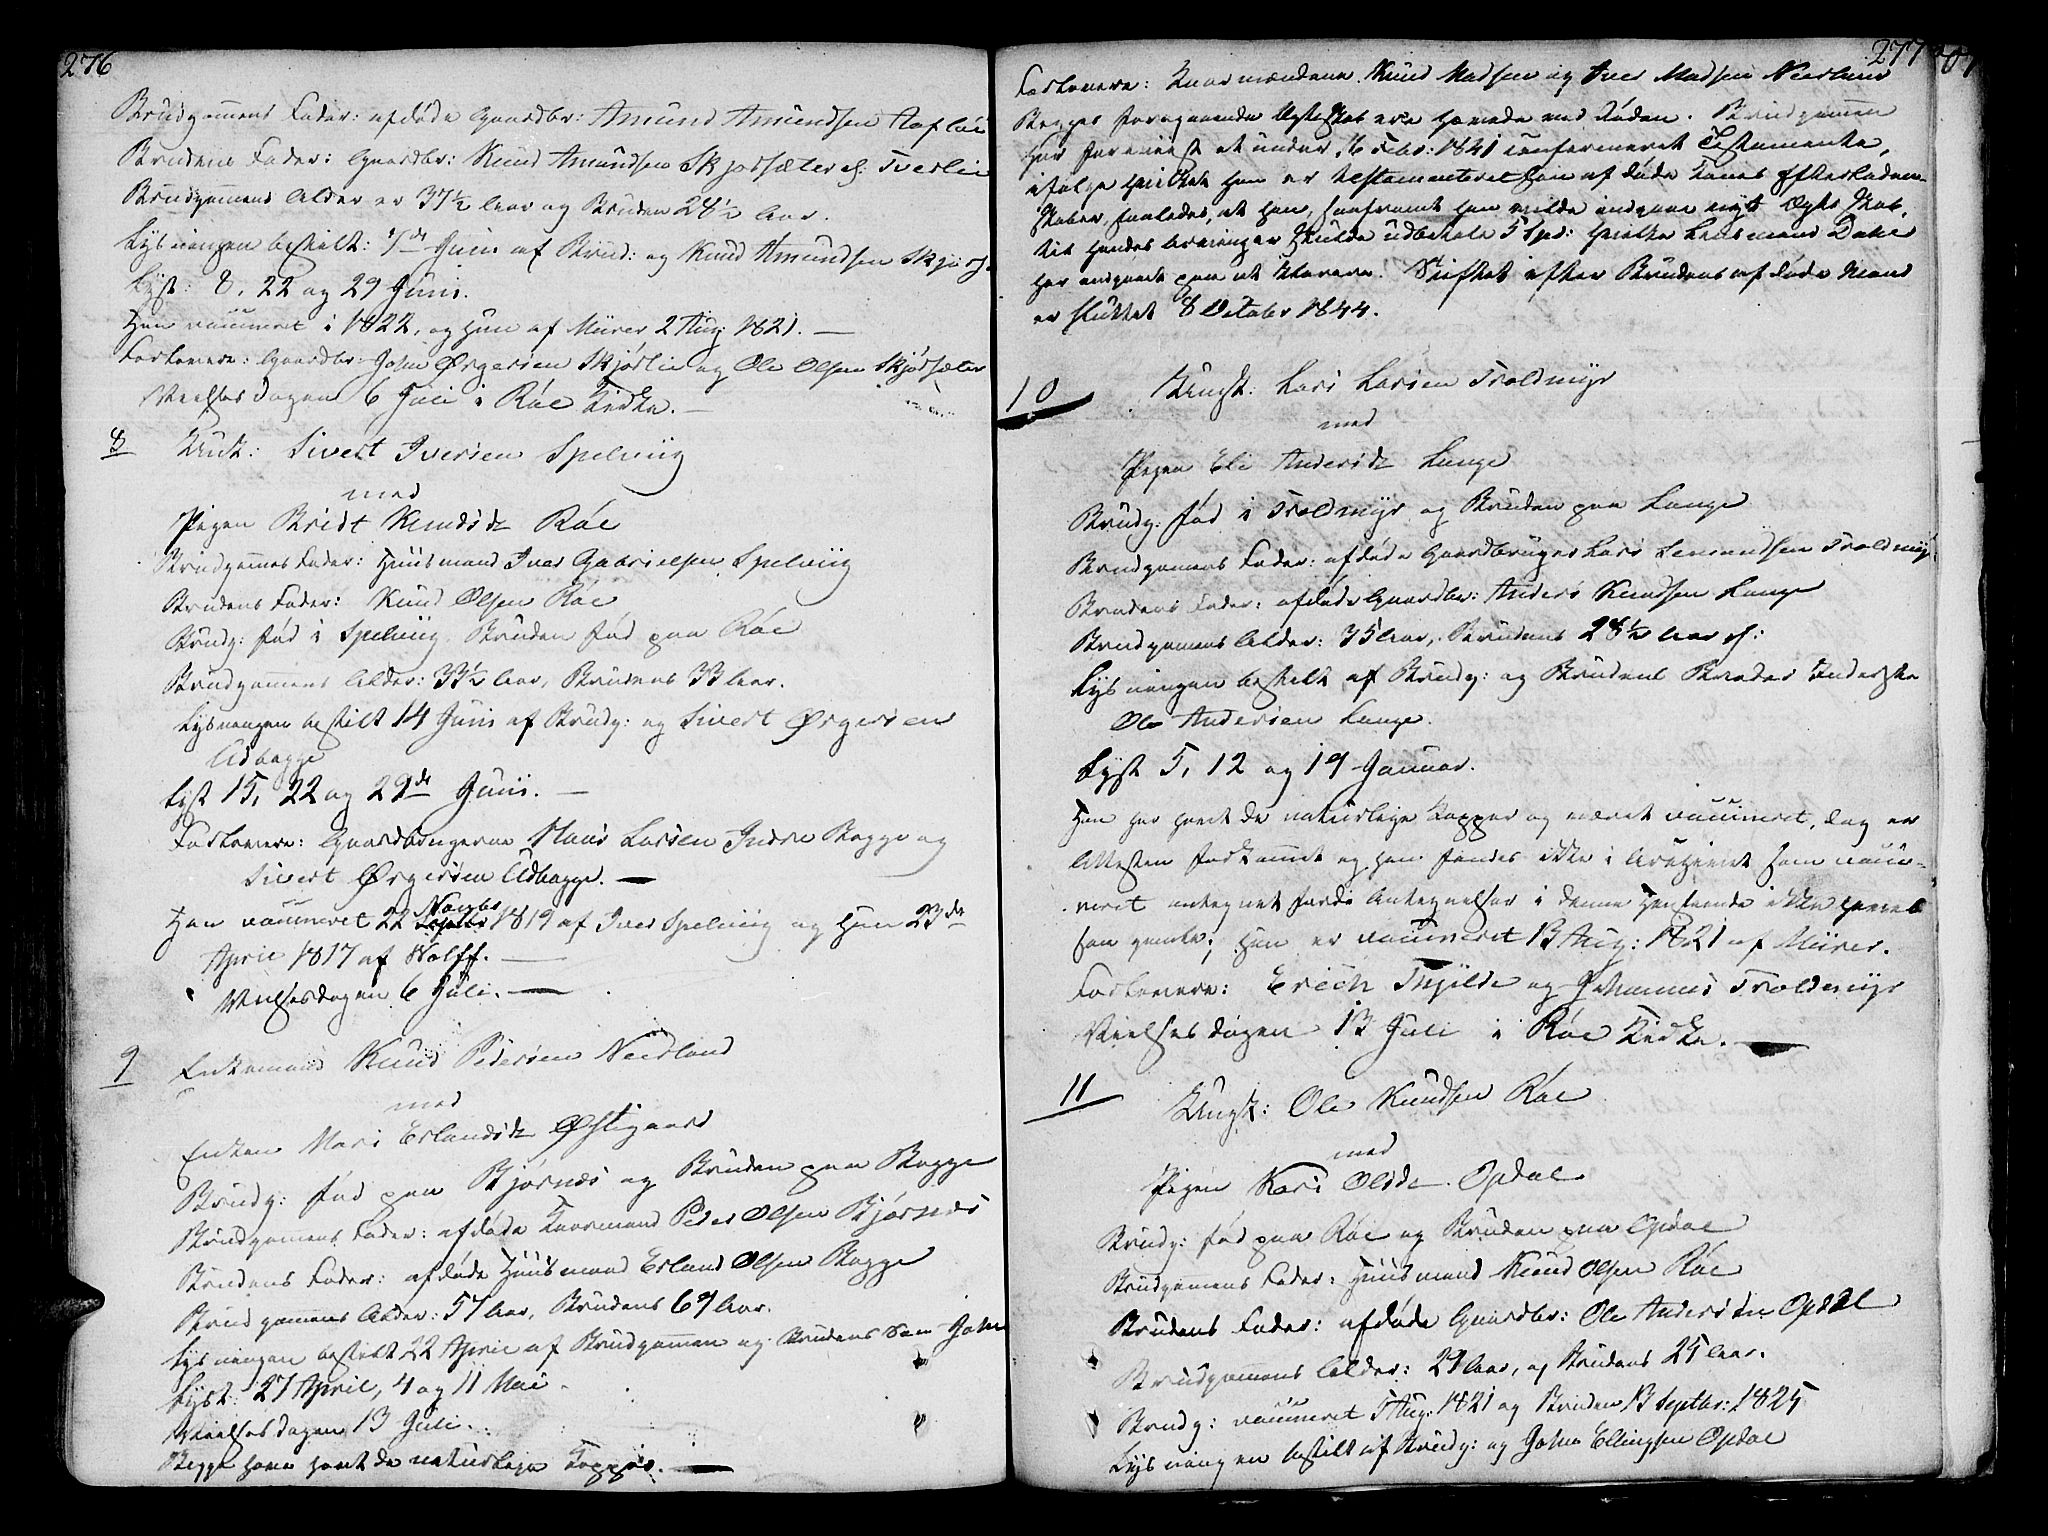 276
Brudgommens Fader: afdøde Gaardbr: Amund Amundsen Hafliè
Brudens Fader: Gaardbr: Knud Amundsen Skjørsæter ell: Tverlie
Brudgommens Alder er 37½ Aar og Bruden 28½ Aar.
Lysningen bestilt: 7de Juni af Brud: og Knud Amundsen Skjørs.
Lyst: 8, 22 og 29 Juni.
Han vaccineret i 1822, og hun af Mürer 2 Aug 1821. —
Forlovere: Gaardbr: John Ørgersen Skjørlie og Ole Olsen Skjørsæter
Vielsesdagen 6 Juli i Röe Kirke. —
8 Ungk: Sivert Iversen Spelviig
med
Pigen Bridt Knudsdtr Röe
Brudgommens Fader: Huusmand Iver Gabrielsen Spelviig
Brudens Fader: Knud Olsen Röe
Brudg: fød i Spelviig. Bruden fød paa Röe
Brudgommens Alder: 33½ Aar, Brudens 33 Aar.
Lysningen bestilt 14 Juni af Brudg: og Sivert Ørgersen
Udbogge
Lyst 15, 22 og 29de Juni. —
Forlovere: Gaardbrugerne Hans Larsen Indre Bogge og
Sivert Ørgersen Udbogge. —
Han vaccineret 22 Novbr 1819 af Iver Spelviig og hun 23de
April 1817 af Wolff. —
Vielsesdagen 6 Juli. —
9 Enkemand Knud Pedersen Neerland
med
Enken Mari Erlandsdtr Østigaard
Brudg: fød paa Bjørnæs og Bruden paa Bogge
Brudgommens Fader: afdøde Kaarmand Peder Olsen Bjørnæs
Brudens Fader: afdøde Huusmand Erland Olsen Bogge
Brudgommens Alder: 57 Aar, Brudens 69 Aar.
Lysningen bestilt 22 April af Brudgommen og Brudens Søn John
Lyst: 27 April, 4 og 11 Mai.
Vielsesdagen 13 Juli.
Begge have havt de naturlige Kopper. —
277
Forlovere: Kaarmændene Knud Madsen og Iver Madsen Neerland
Begges foregaaende Ægteskab ere hævede ved Døden. Brudgommen
har foreviist et under 16 Febr: 1841 confirmeret Testamente,
ifølge hvilket han er testamenteret sin afdøde Kones Efterladen-
skaber, saaledes, at han, saafremt han vilde indgaae nyt Ægteskab,
til hendes Arvinger skulde udbetale 5 Spd: hvilke Lensmand Dahl
har indgaaet paa at klarere. Skiftet efter Brudens afdøde Mand
er sluttet 8 October 1844.
10 Ungk: Lars Larsen Troldmyr
med
Pigen Eli Andersdtr Lange
Brudg: fød i Troldmyr og Bruden paa Lange
Brudgommens Fader: afdøde Gaardbruger Lars Semundsen Troldmyr
Brudens Fader: afdøde Gaardbr: Anders Knudsen Lange
Brudgommens Alder: 35 Aar, Brudens 28½ Aar
Lysningen bestilt af Brudg: og Brudens Broder Inderste
Ole Andersen Lange.
Lyst 5, 12 og 19 Januar.
Han har havt de naturlige Kopper og været vaccineret, dog er
Attesten forkommet og han fandes ikke i Archivet som vacci-
neret antegnet fordi Antegnelser i denne Henseende ikke haves
saa gamle; hun er vaccineret 13 Aug: 1821 af Mürer.
Forlovere: Erich Thjelde og Johannes Troldmyr
Vielsesdagen 13 Juli i Röe Kirke. —
11 Ungk: Ole Knudsen Röe
med
Pigen Kari Olsdtr. Opdal
Brudg: fød paa Röe og Bruden paa Opdal
Brudgommens Fader: Huusmand Knud Olsen Röe
Brudens Fader: afdøde Gaardbr: Ole Andersen Opdal
Brudgommens Alder: 29 Aar, og Brudens 25 Aar.
Brudg: vaccineret 5 Aug: 1821 og Bruden 13 Septbr: 1825
Lysningen bestilt af Brudg: og John Ellingsen Opdal